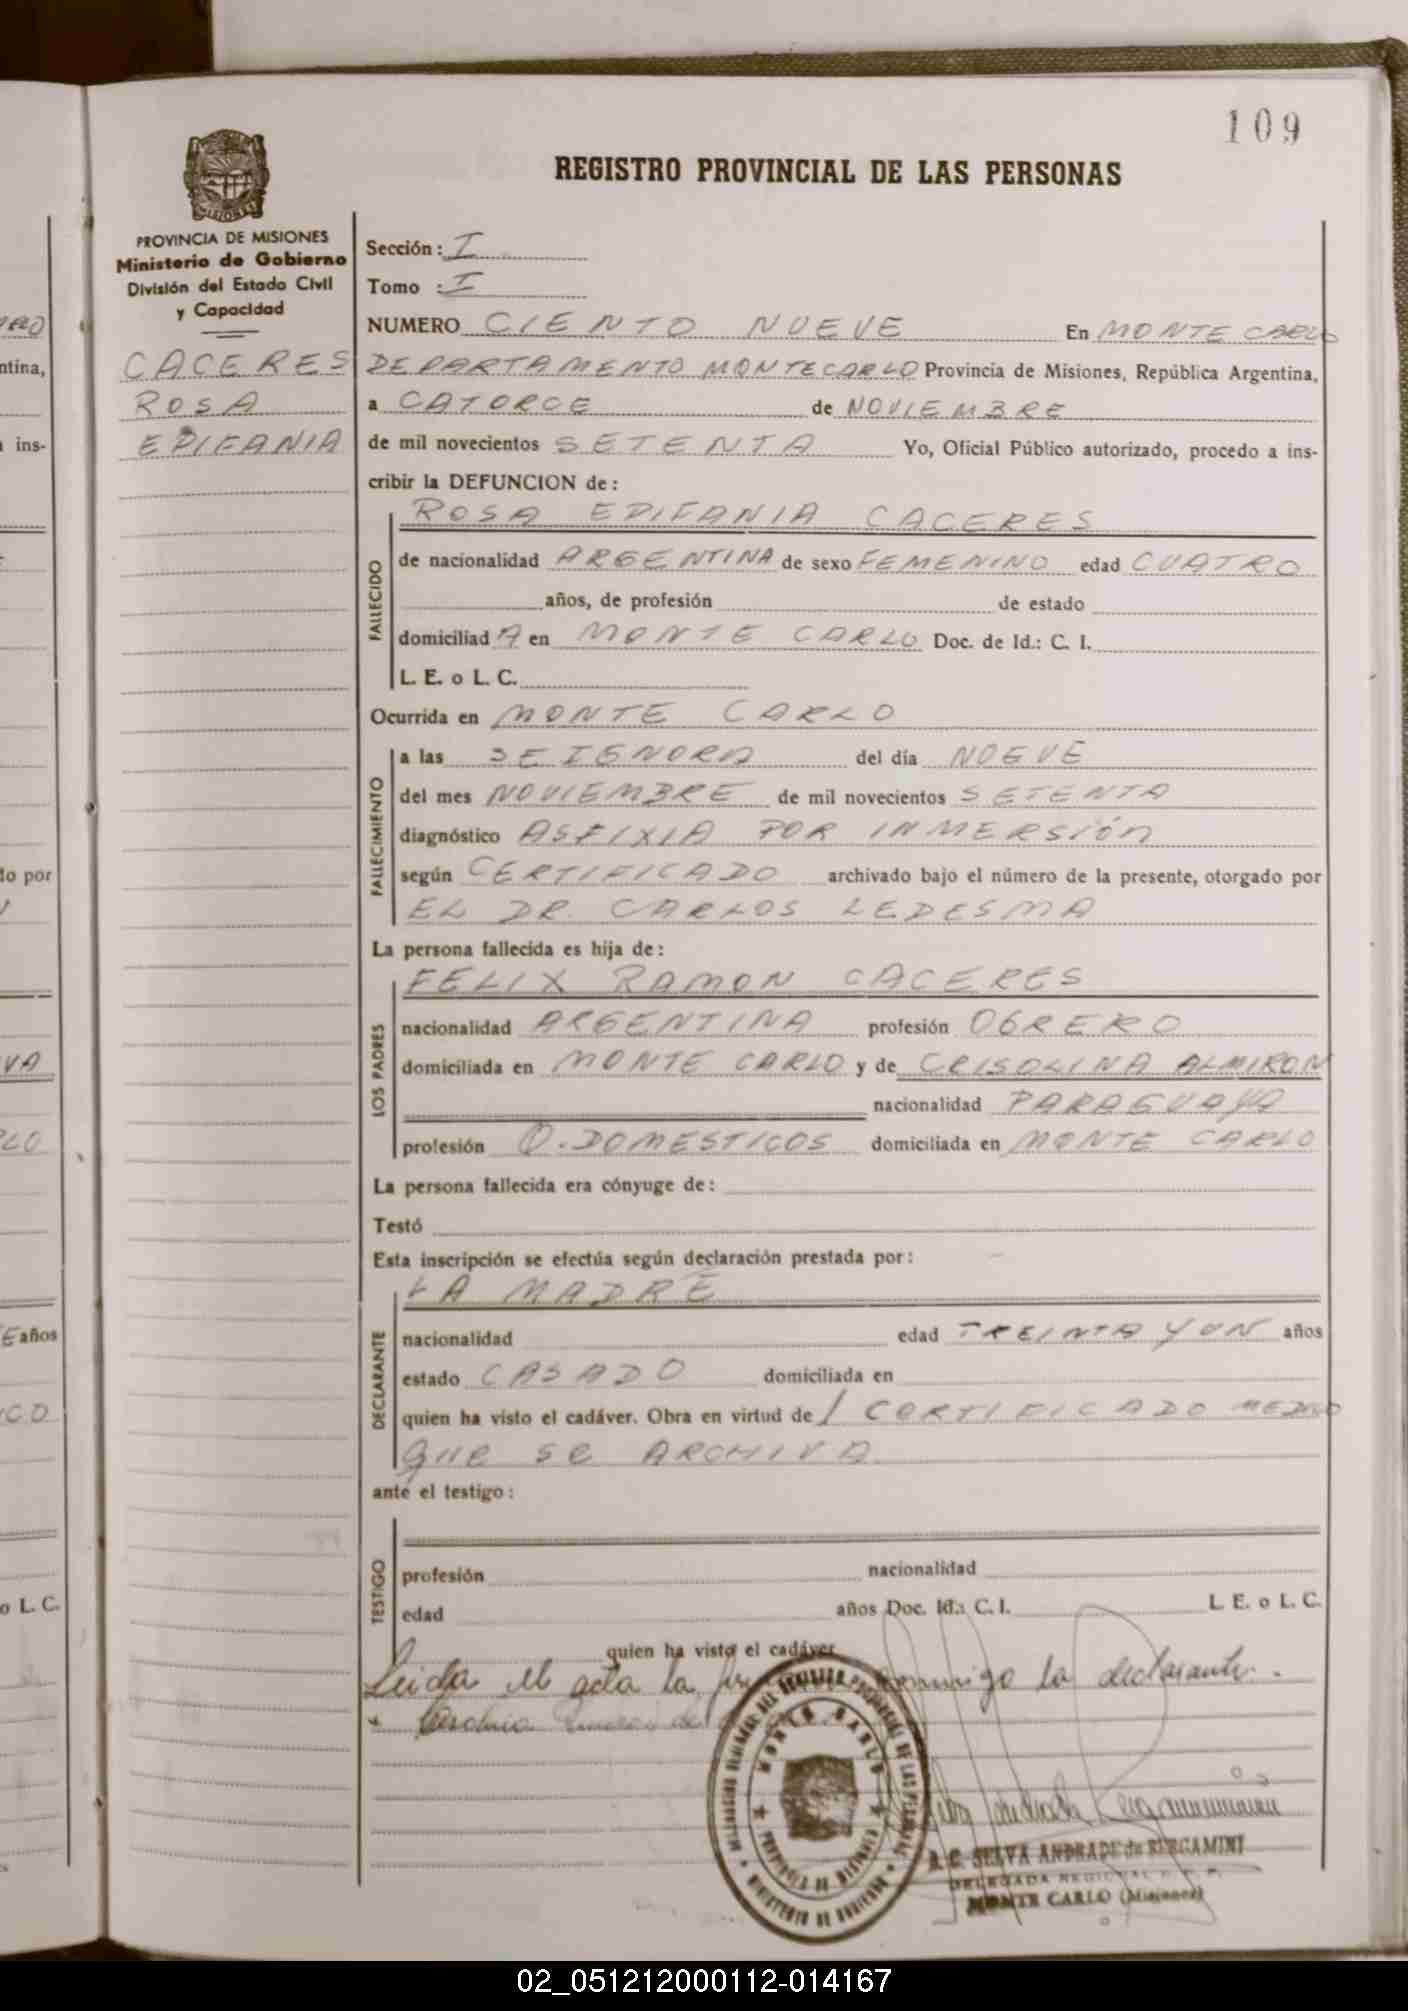 109
REGISTRO PROVINCIAL DE LAS PERSONAS
MISIONES
PROVINCIA DE MISIONES
Ministerio de Gobierno
División del Estado Civil
y Capacidad
CACERES
ROSA
EPIFANIA
Sección: I
Tomo : I
NUMERO CIENTO NUEVE En MONTE CARLO
DEPARTAMENTO MONTECARLO Provincia de Misiones, República Argentina,
a CATORCE de NOVIEMBRE
de mil novecientos SETENTA Yo, Oficial Público autorizado, procedo a ins-
cribir la DEFUNCION de:
ROSA EPIFANIA CACERES
FALLECIDO
de nacionalidad ARGENTINA de sexo FEMENINO edad CUATRO
años, de profesión de estado
domiciliad A en MONTE CARLO Doc. de Id.: C. I.
L. E. o L. C.
Ocurrida en MONTE CARLO
FALLECIMIENTO
a las del día NOEVE
del mes NOVIEMBRE de mil novecientos SETENTA
diagnóstico ASFIXIA POR INMERSIÓN
según CERTIFICADO archivado bajo el número de la presente, otorgado por
EL DR. CARLOS LEDESMA
La persona fallecida es hija de:
FELIX RAMON CACERES
LOS PADRES
nacionalidad ARGENTINA profesión OBRERO
domiciliada en MONTE CARLO y de CRISOLINA ALMIRON
nacionalidad PARAGUAYA
profesión Q. DOMESTICOS domiciliada en MONTE CARLO
La persona fallecida era cónyuge de:
Testó
Esta inscripción se efectúa según declaración prestada por:
LA MADRE
DECLARANTE
nacionalidad edad TREINTA Y UN años
estado CASADO domiciliada en
quien ha visto el cadáver. Obra en virtud de / CERTIFICADO MEDICO
QUE SE ARCHIVA
ante el testigo:
TESTIGO
profesión nacionalidad
edad años Doc. Id.: C. I. L. E. o L. C.
quien ha visto el cadáver
Leida el acta la conmigo la declarante.
MONTE CARLO
PROVINCIA DE MISIONES
MINISTERIO DE GOBIERNO
SELVA ANDRADE de BERGAMINI
DELEGADA REGIONAL
MONTE CARLO (Misiones)
ntina,
ins-
do por
VA
años
o L. C.
02_051212000112-014167